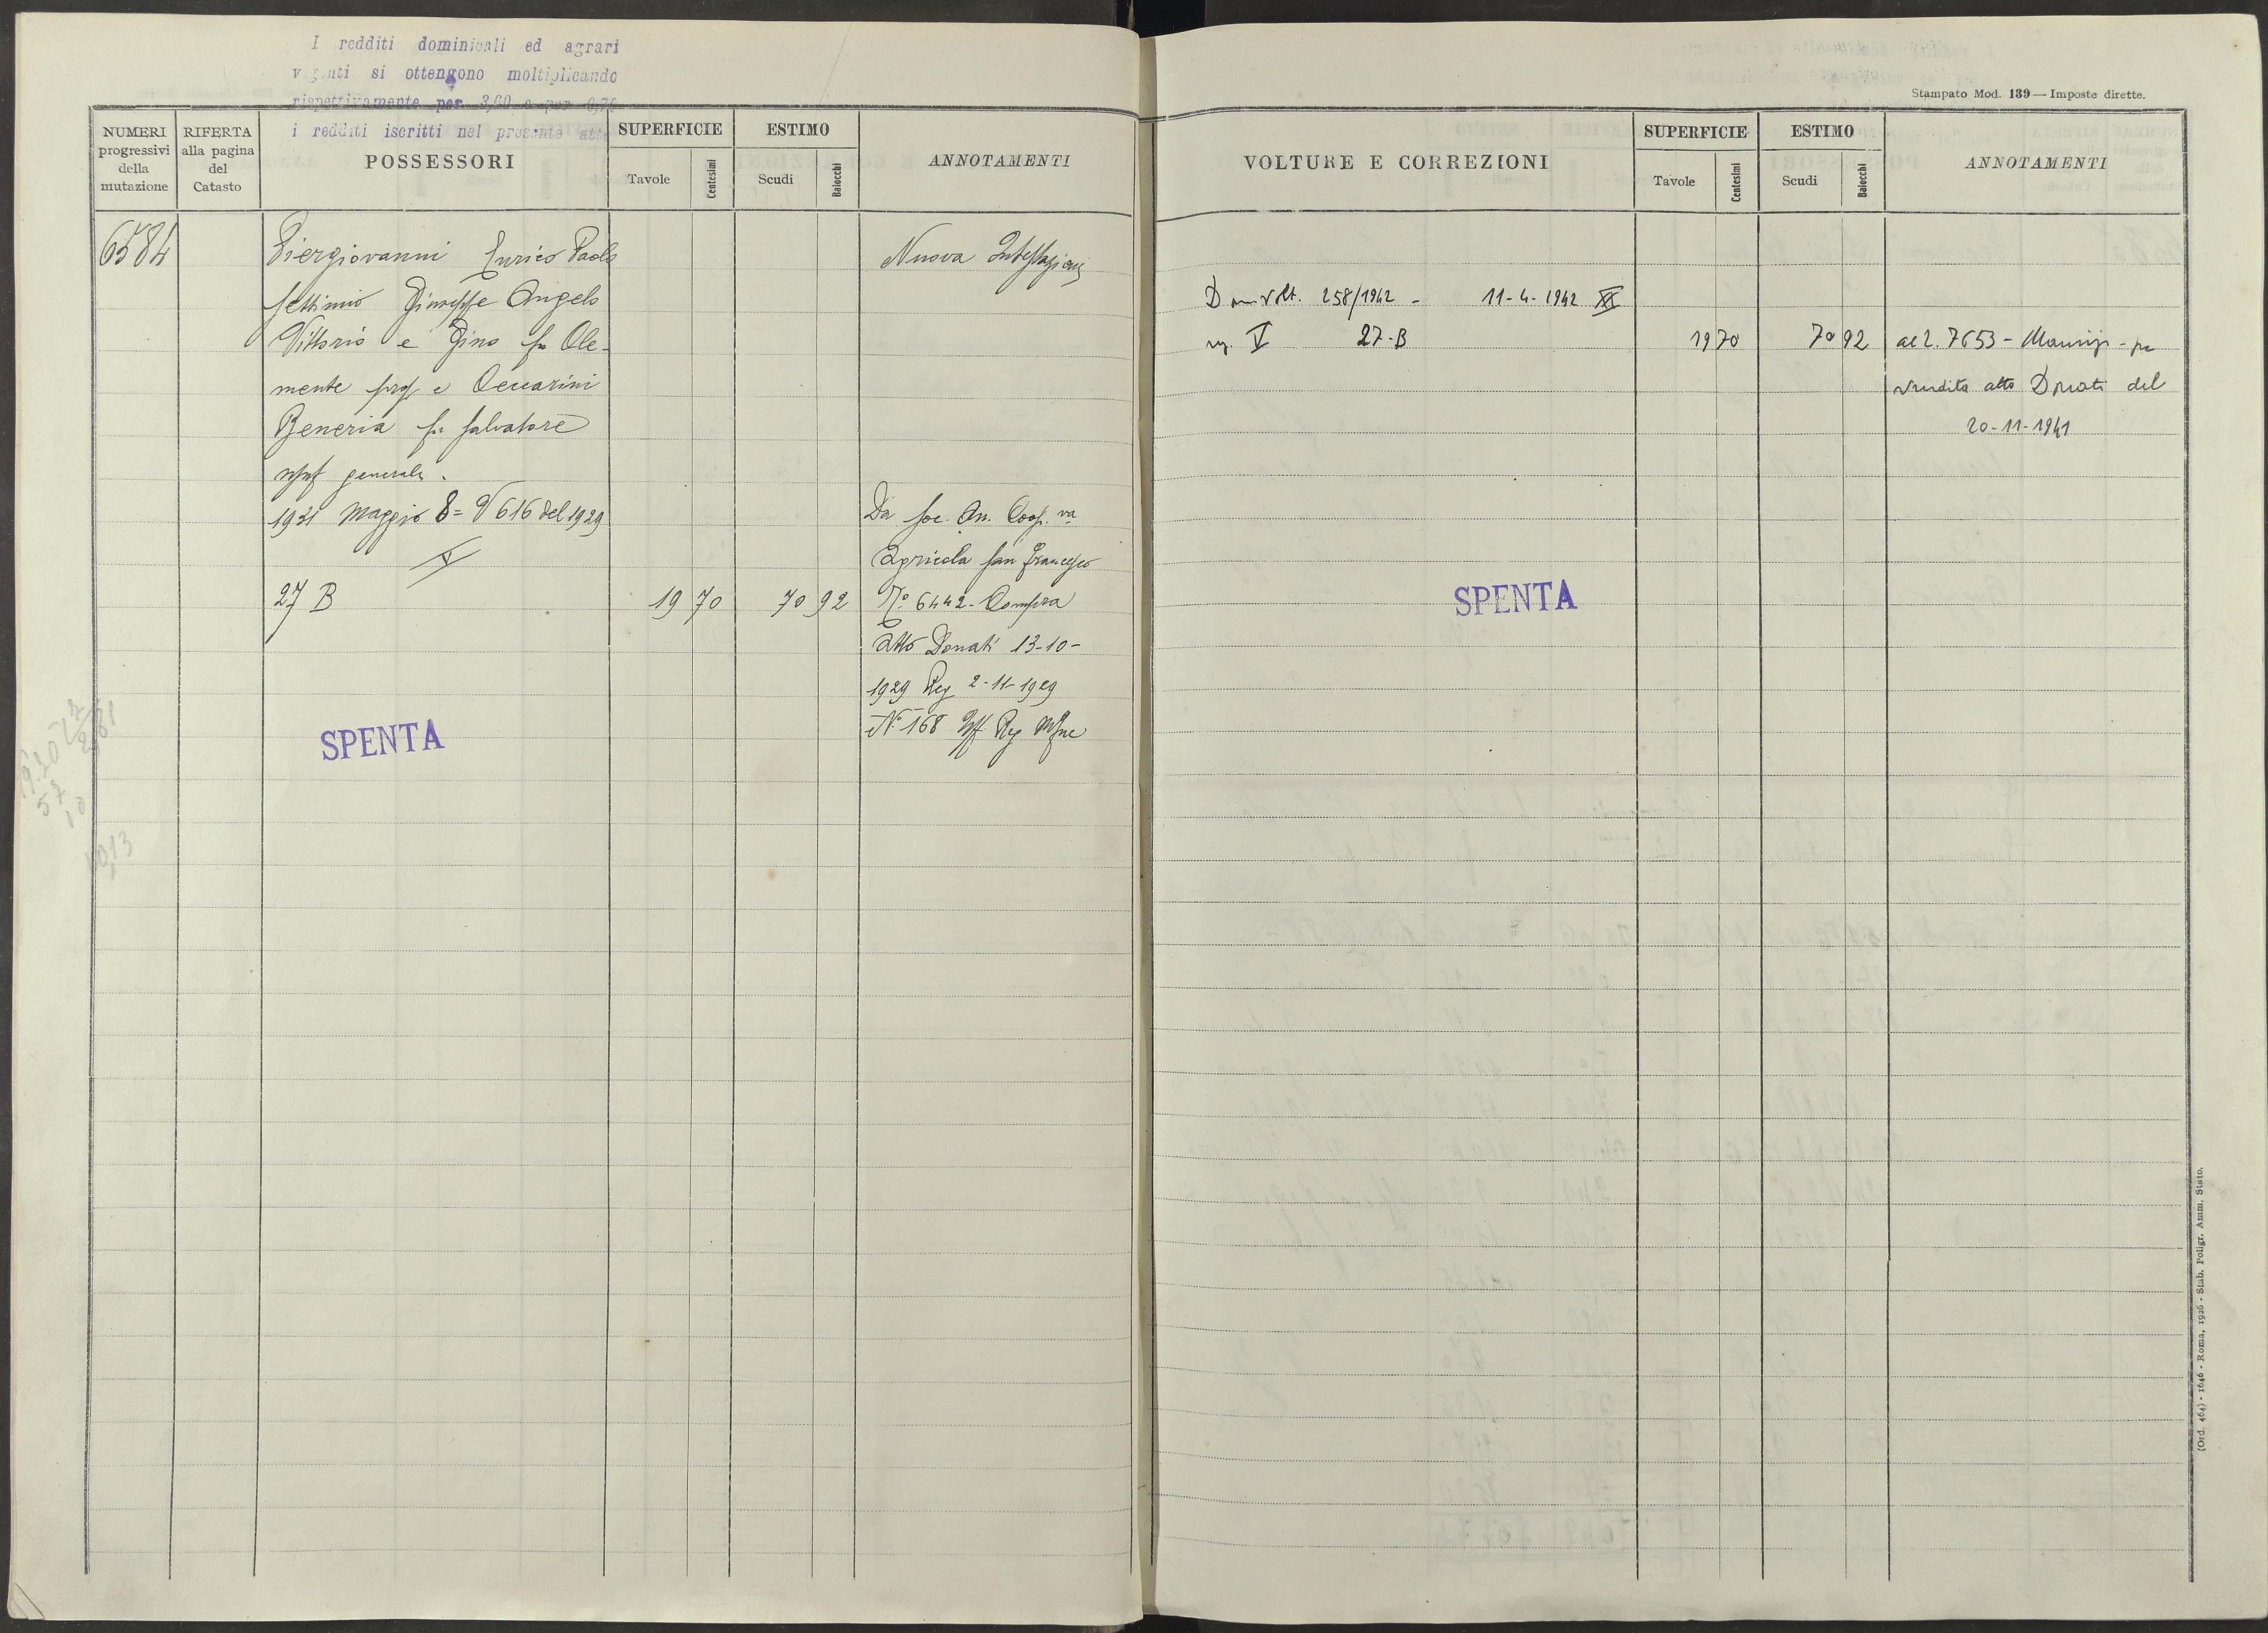 I redditi dominicali ed agrari
vigenti si ottengono moltiplicando
rispettivamente per 3,60 e per 0,70
i redditi iscritti nel presente atto
NUMERI progressivi della mutazione
RIFERTA alla pagina del Catasto
POSSESSORI
SUPERFICIE
Tavole
Centesimi
ESTIMO
Scudi
Baiocchi
ANNOTAMENTI
6584
Piergiovanni Enrico Paolo
Settimio Giuseppe Angelo
Vittorio e Gino fu Cle-
mente prop e Ceccarini
Beneria fu Salvatore
usuf generale.
1931 Maggio 8 = V 616 del 1929
V
27 B
19 70
70 92
Nuova Intestazione
Da Soc. An. Coop.va
Agricola San Francesco
N.° 6442 - Compra
atto Donati 13-10-
1929 Reg 2-11-1929
N.° 168 Uff. Reg
SPENTA
Stampato Mod. 139 — Imposte dirette.
VOLTURE E CORREZIONI
SUPERFICIE
Tavole
Centesimi
ESTIMO
Scudi
Baiocchi
ANNOTAMENTI
volt. 258/1942 - 11-4-1942 XX
V 27-B
19 70
70 92
al 2. 7653 -
vendita atto Donati del
20-11-1941
SPENTA
(Ord. 464) - 1646 - Roma, 1926 - Stab. Poligr. Amm. Stato.